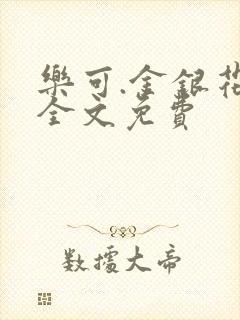 樂可.金銀花
全文免費
數據大帝